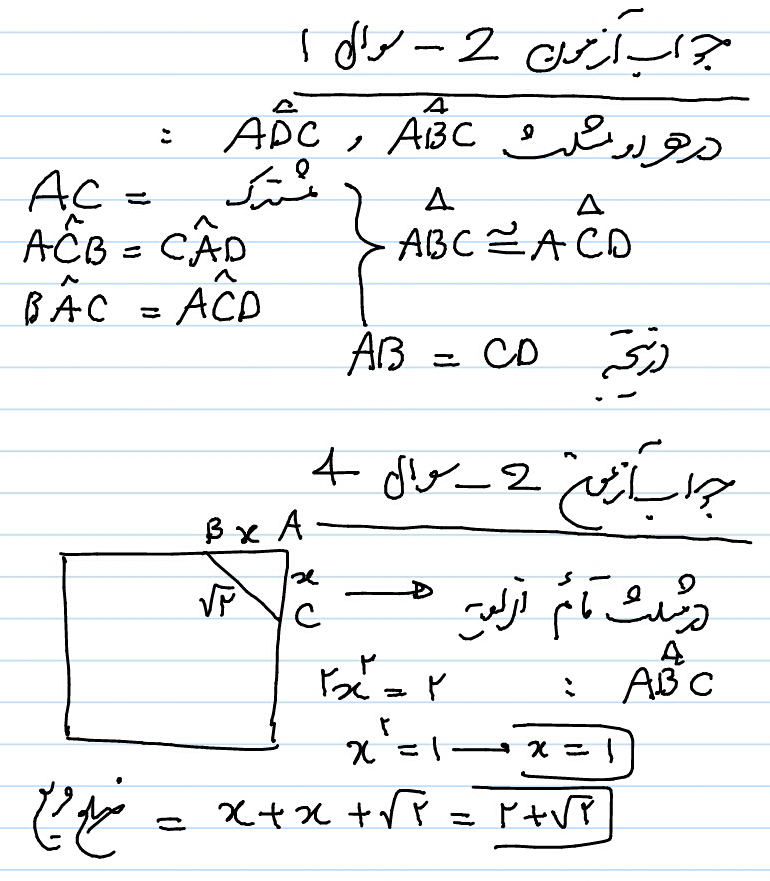 جواب آزمون 2 - سوال ۱
در هر دو مثلث ABC , ADC :
AC = مشترک
AĈB = CÂD
BÂC = AĈD
ABC ≅ ACD
در نتیجه AB = CD
جواب آزمون 2 - سوال 4
B x A
x
√۲
C
در مثلث قائم الزاویه
ABC :
۲x^۲ = ۲
x^۲ = ۱ → x = ۱
ضلع مربع = x + x + √۲ = ۲ + √۲